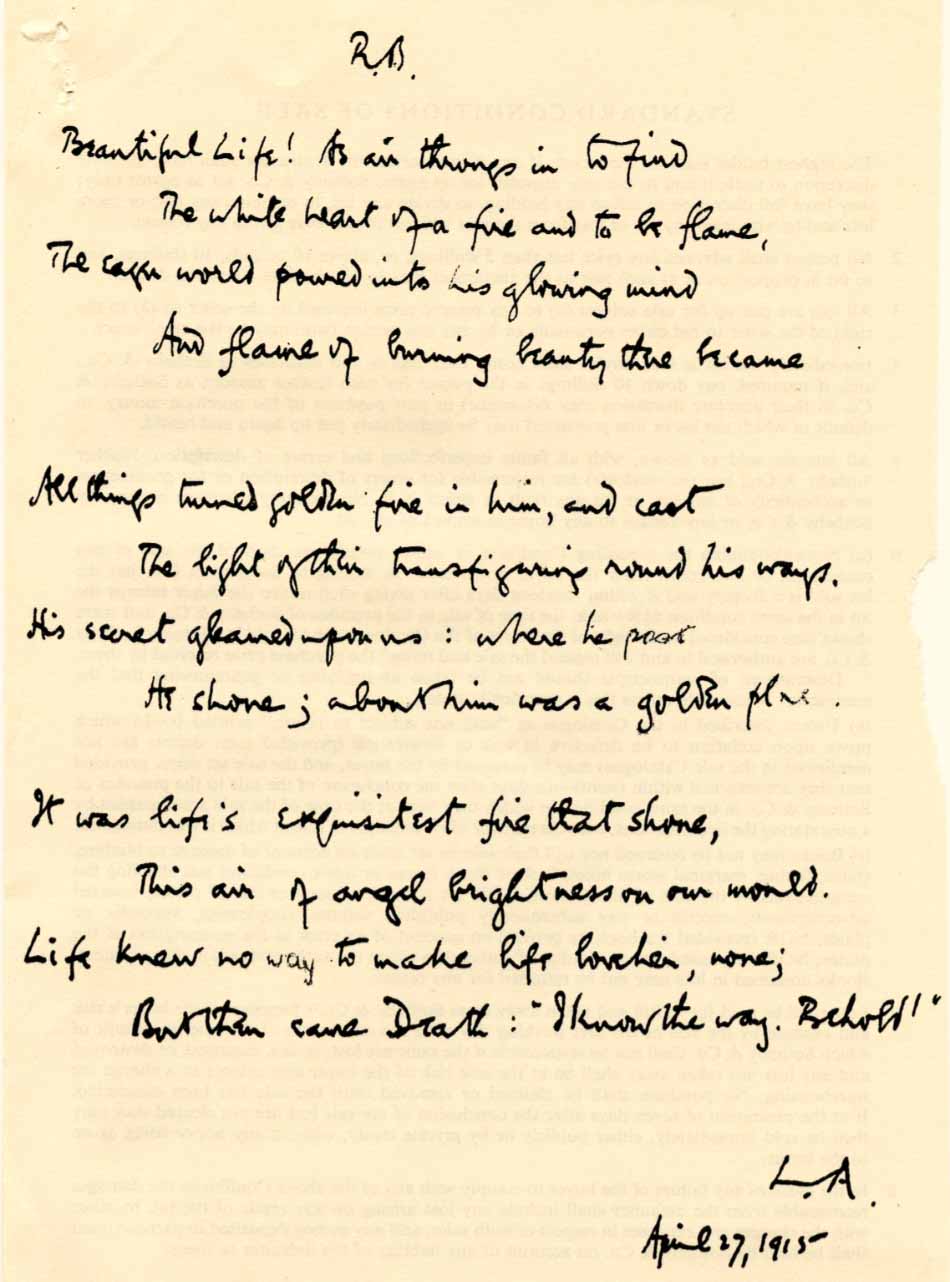 R.B.
Beautiful Life! As air throngs in to find
The white heart of a fire and to be flame,
The eager world poured into his glowing mind
And flame of burning beauty there became
All things turned golden fire in him, and cast
The light of their transfiguring round his ways.
His secret gleamed upon us : where he past
He shone ; about him was a golden
It was life's exquisitest fire that shone,
This air of angel brightness on our mould.
Life knew no way to make life lovelier, none;
But then came Death : "I know the way. Behold!"
L.A.
April 27, 1915